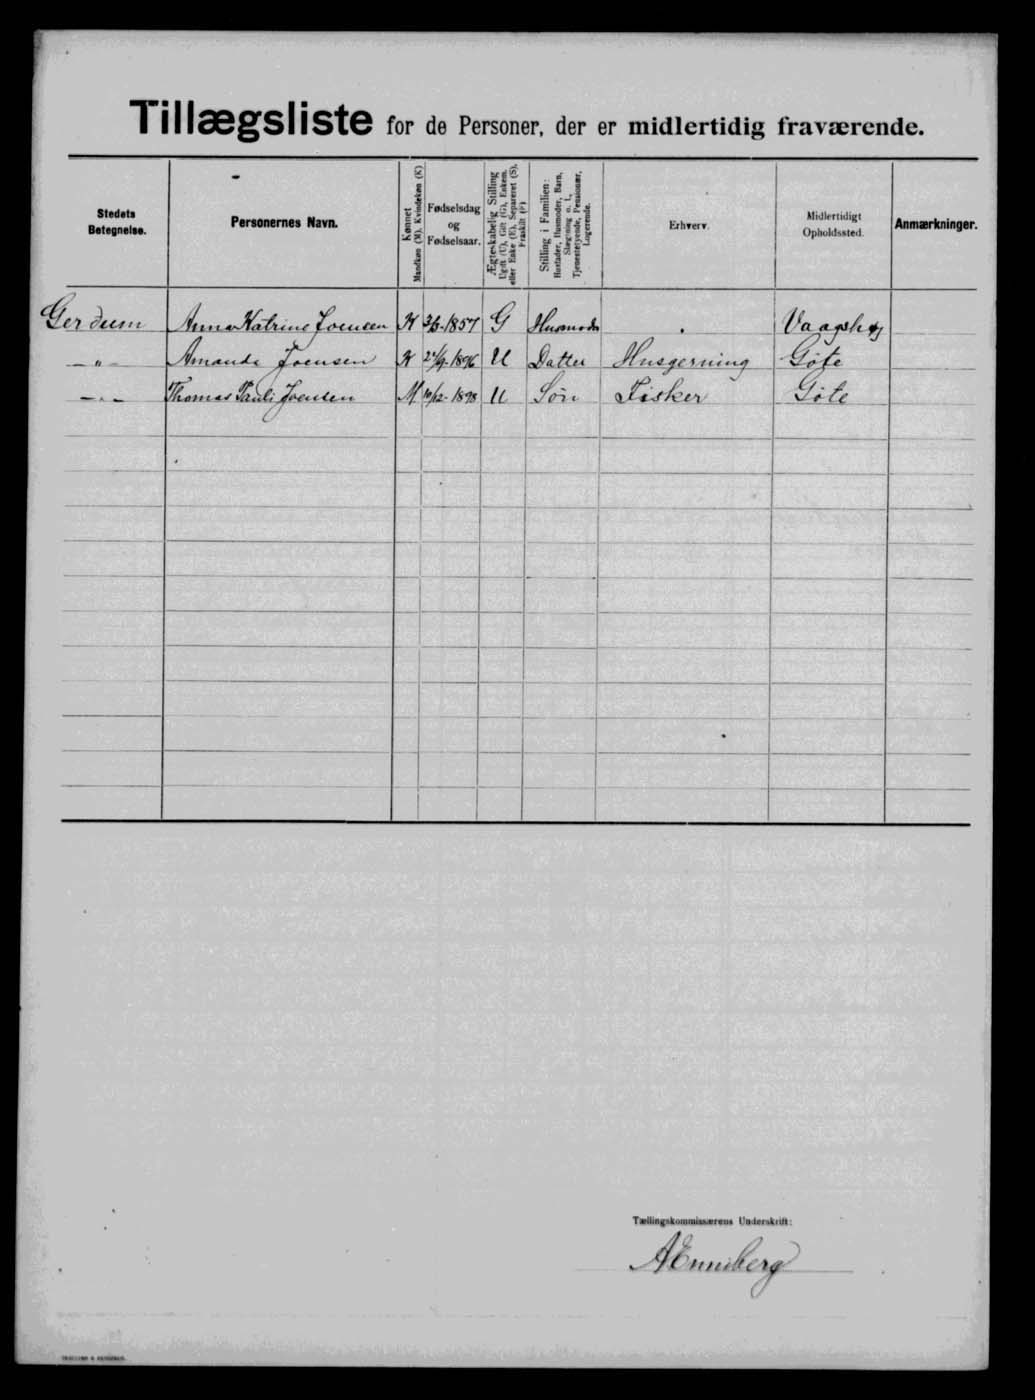 Tillægsliste for de Personer, der er midlertidig fraværende.
Stedets Betegnelse. | Personernes Navn. | Kønnet Mandkøn (M). Kvindekøn (K) | Fødselsdag og Fødselsaar. | Ægteskabelig Stilling Ugift (U), Gift (G), Enkem. eller Enke (E), Separeret (S), Fraskilt (F) | Stilling i Familien: Husfader, Husmoder, Barn, Slægtning o. l., Tjenestetyende, Pensionær, Logerende. | Erhverv. | Midlertidigt Opholdssted. | Anmærkninger.
Gerdum | Anna Katrine Joensen | K | 3/3-1857 | G | Husmoder | | Vaagshøj
—„— | Amanda Joensen | K | 27/9-1896 | U | Datter | Husgerning | Gøte
—„— | Thomas Pauli Joensen | M | 10/12-1898 | U | Søn | Fisker | Gøte
Tællingskommissærens Underskrift:
AEnniberg